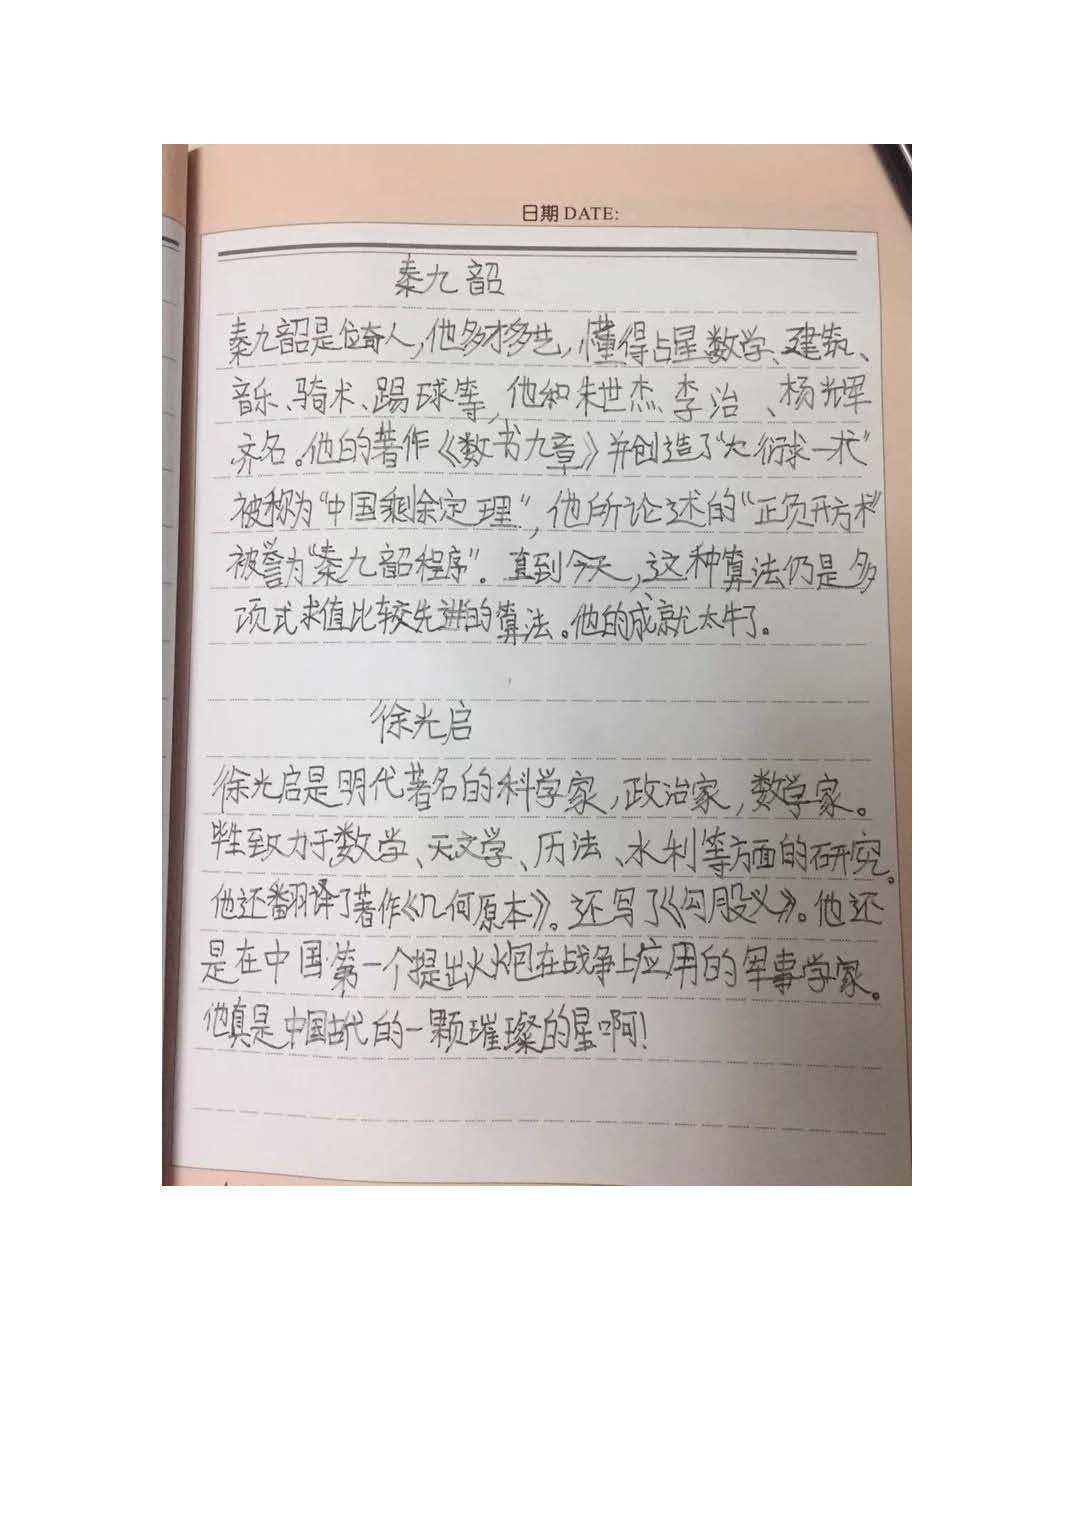 日期 DATE:
秦九韶
秦九韶是位奇人,他多才多艺,懂得占星数学、建筑、
音乐、骑术、踢球等,他和朱世杰、李治、杨辉
齐名。他的著作《数书九章》并创造了“大衍求一术”
被称为“中国剩余定理”,他所论述的“正负开方术”
被誉为“秦九韶程序”。直到今天,这种算法仍是多
项式求值比较先进的算法。他的成就太牛了。
徐光启
徐光启是明代著名的科学家,政治家,数学家。
毕生致力于数学、天文学、历法、水利等方面的研究。
他还翻译了著作《几何原本》。还写了《勾股义》。他还
是在中国第一个提出火炮在战争上应用的军事学家。
他真是中国古代的一颗璀璨的星啊!